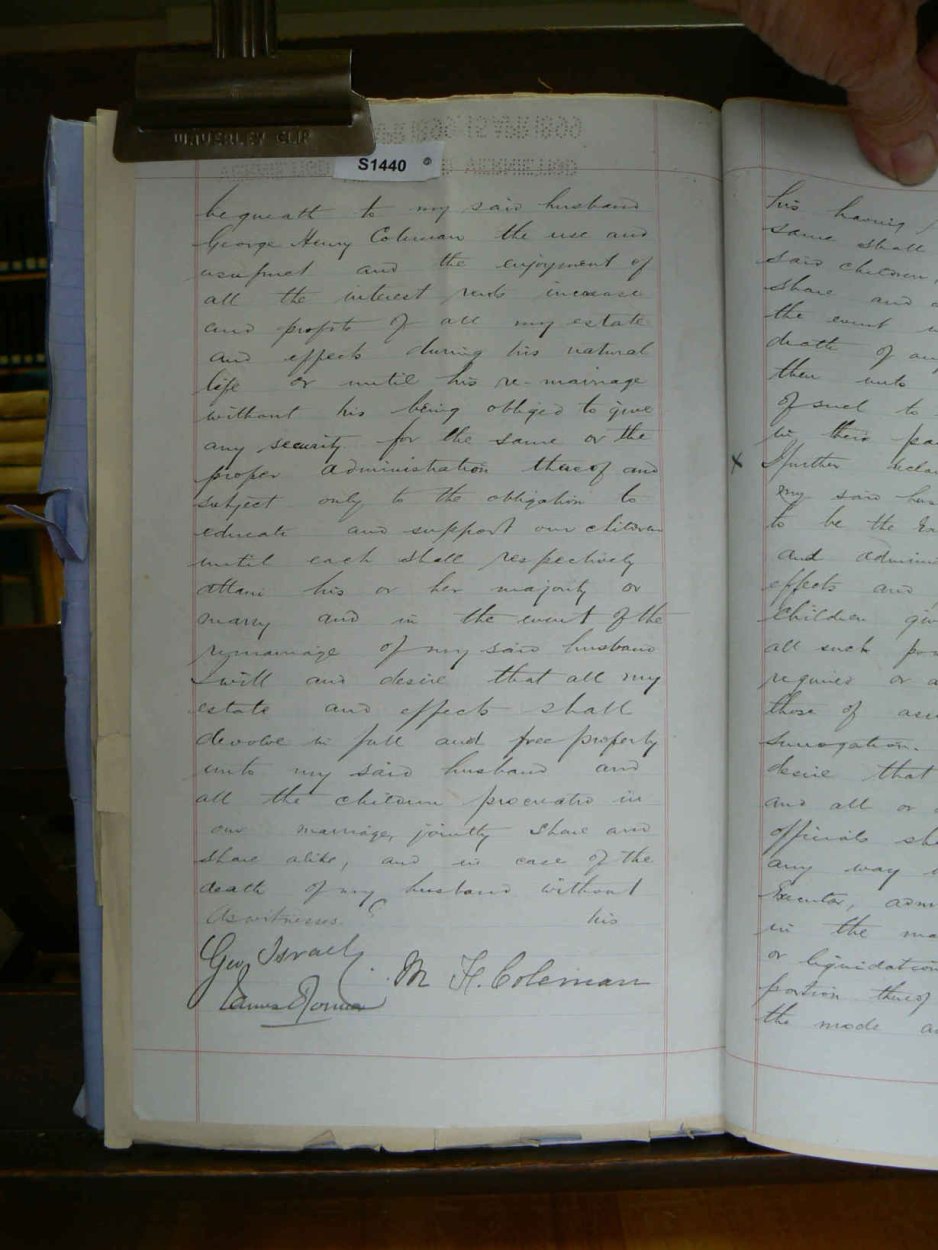 WAVERLEY CLIP
S1440
bequeath to my said husband
George Henry Coleman the use and
usufruct and the enjoyment of
all the interest rents increase
and profits of all my estate
and effects during his natural
life or until his re-marriage
without his being obliged to give
any security for the same or the
proper administration thereof and
subject only to the obligation to
educate and support our children
until each shall respectively
attain his or her majority or
marry and in the event of the
remarriage of my said husband
I will and desire that all my
estate and effects shall
devolve in full and free property
unto my said husband and
all the children procreated in
our marriage, jointly share and
share alike, and in case of the
death of my husband without
As witnesses. his
Geo. Israel
M H. Coleman
James
his having
same shall
said children,
share and
the event
death of
then unto
of such to
in their
x I further
my said
to be the
and
effects and
children
all such
required or
those of
surrogation.
desire that
and all or
officials
any way
Executor,
in the
or liquidation
portion thereof
the mode